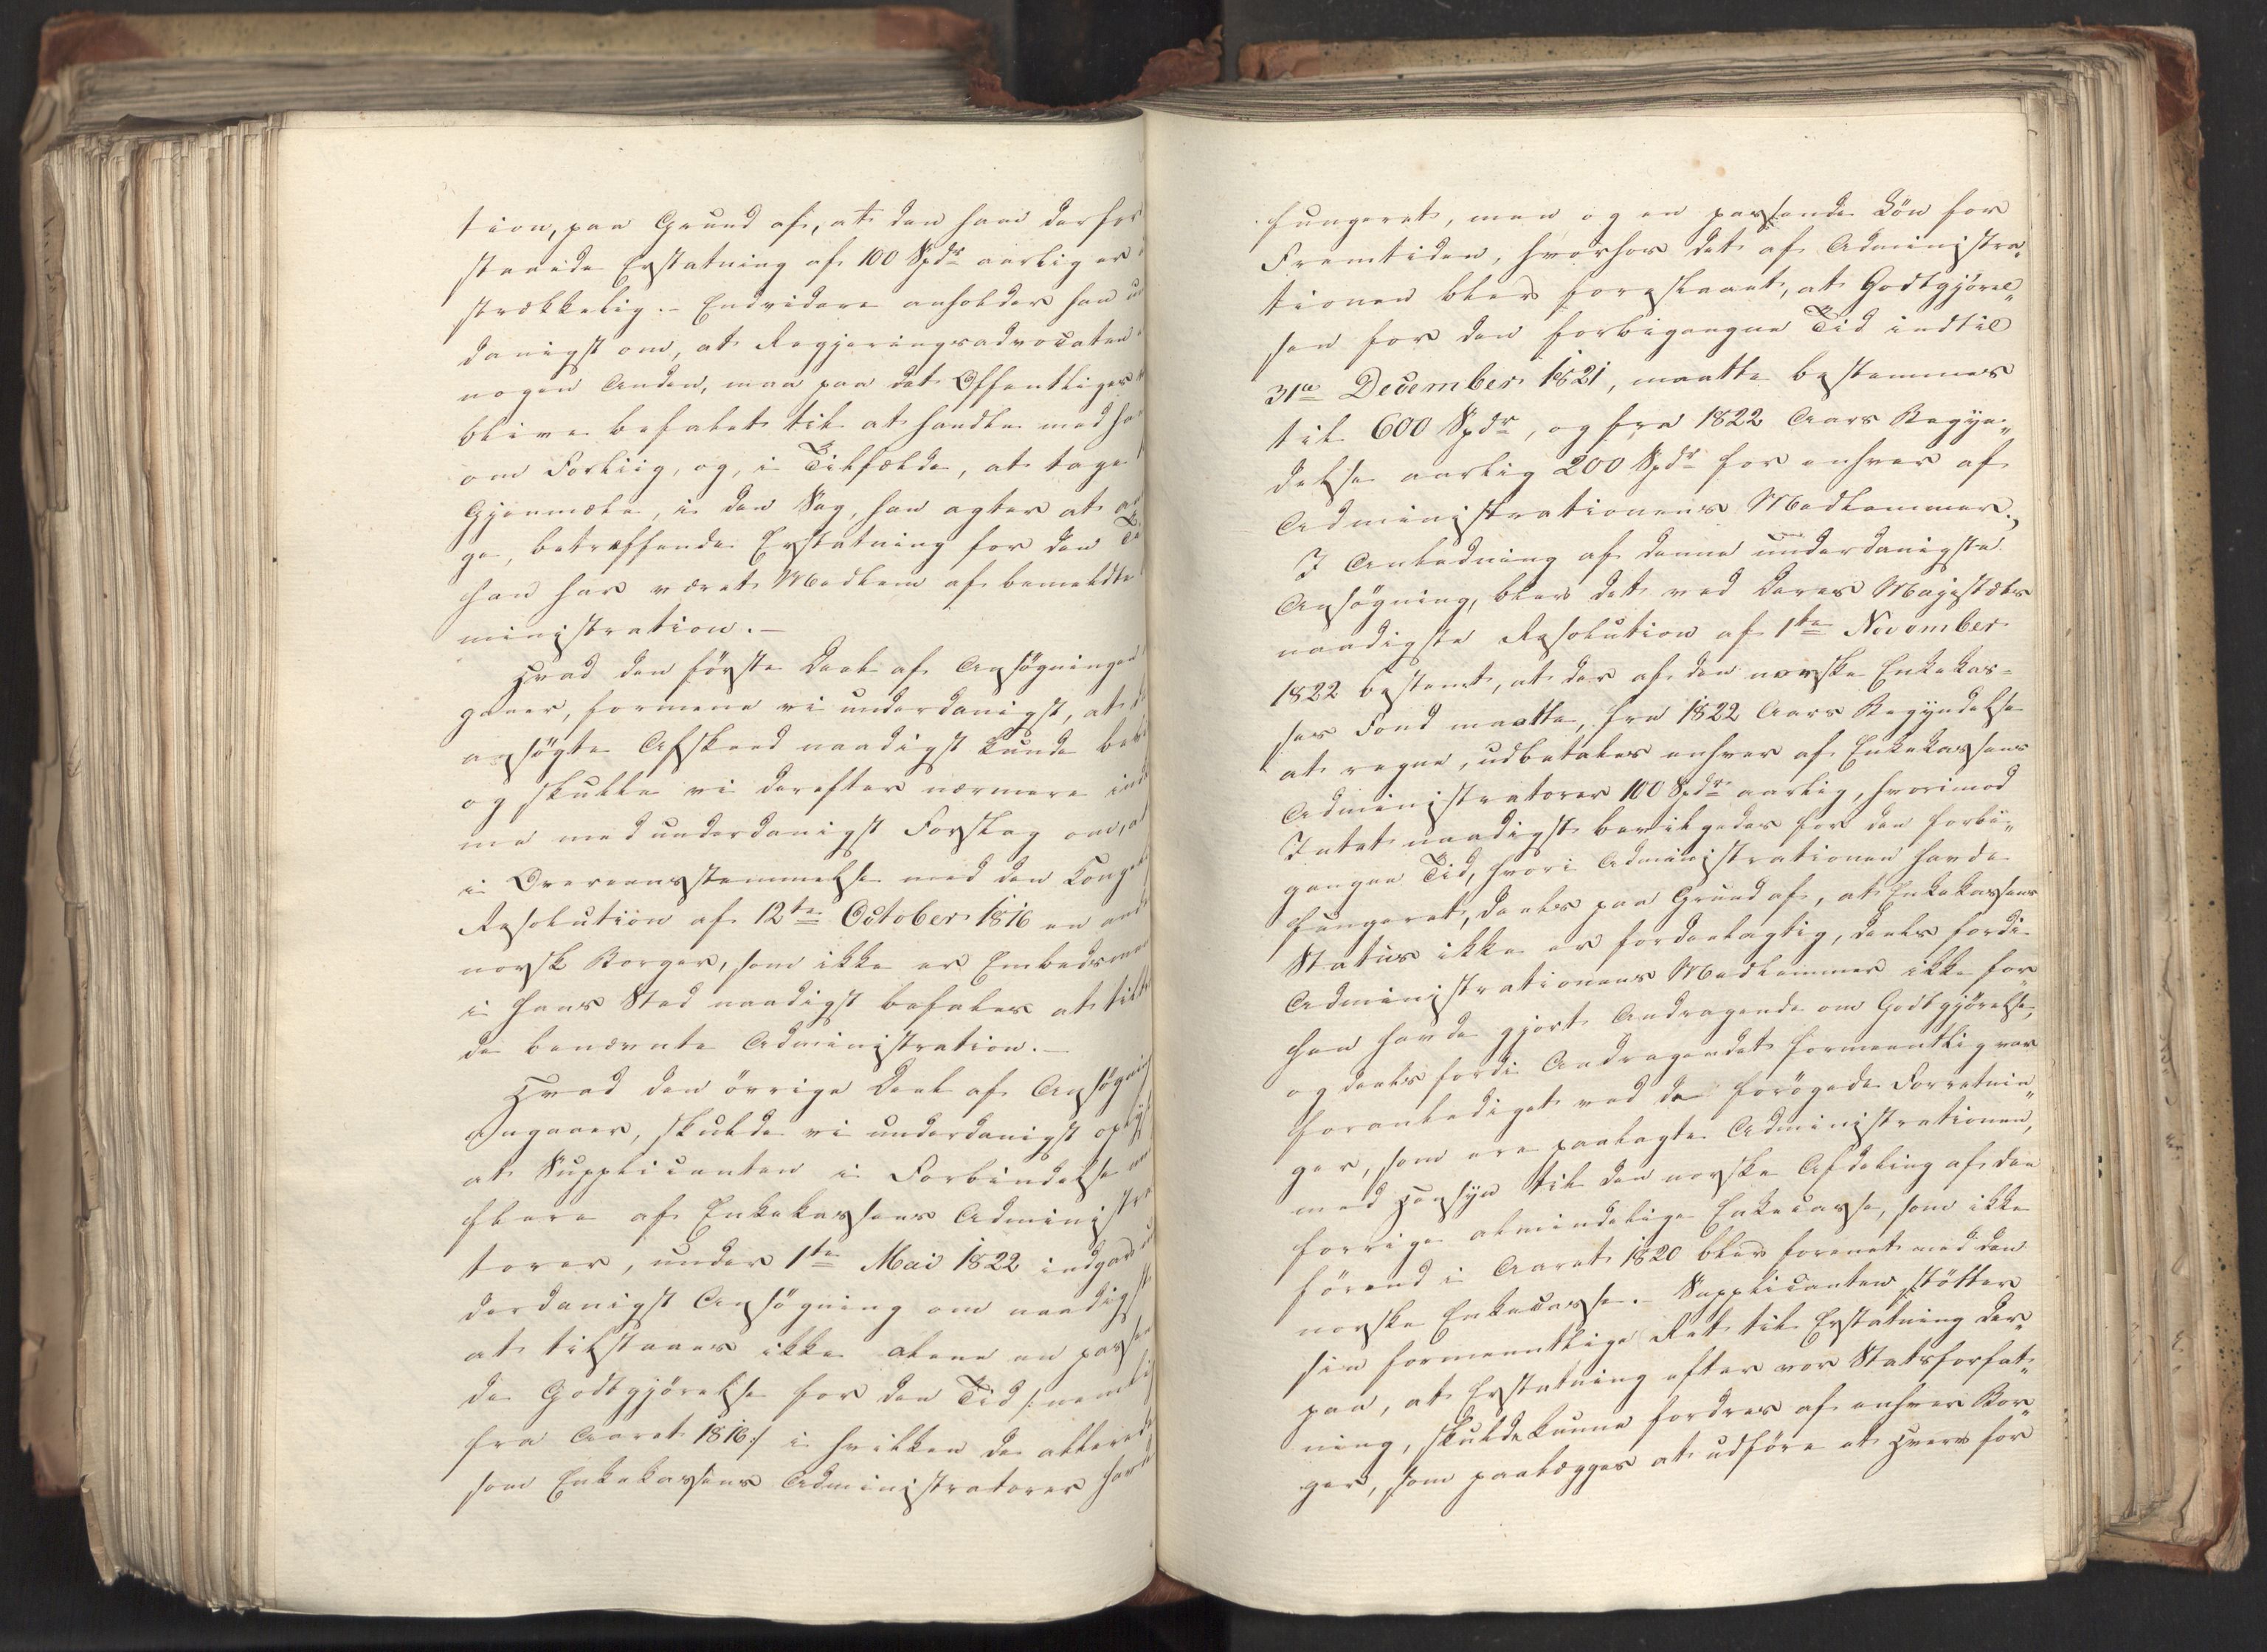 tion, paa Grund af, at den ham derfor
staaede Erstatning af 100 Spdr aarlig er
strækkelig.- Endvidere anholder han un
danigst om, at Regjeringsadvocaten
nogen Anden, maa paa det Offentliges
blive befalet til at handle med ha
om Forliig, og, i Tilfælde, at tage
Gjenmæle, i den Sag, han agter at an
ge, betræffende Erstatning for den Ti
han har været Medlem af bemeldte
ministration.-
Hvad den første Deel af Ansøgningen
gaaer, formene vi underdanigst, at
ansøgte Afskeed naadigst kunde be
og skulle vi derefter nærmere ind
me med underdanigst Forslag om, at
i Overeensstemmelse med den Konge
Resolution af 12te October 1816 en and
norsk Borger, som ikke er Embedsman
i hans Sted naadigst befales at til
de benævnte Administration.-
Hvad den øvrige Deel af Ansøgning
angaaer, skulde vi underdanigst oply
at Supplicanten i Forbindelse med
flere af Enkekassens Administra
torer, under 1te Mai 1822 indgav un
derdanigst Ansøgning om naadigst
at tilstaaes ikke alene en passen
de Godtgjørelse for den Tid /:nemlig
fra Aaret 1816:/ i hvilken de allerede
som Enkekassens Administratorer havde
fungeret, men og en passende Løn for
Fremtiden, hvorhos det af Administra„
tionen blev foreslaaet, at Godtgjørel„
sen for den forbigangne Tid indtil
31te December 1821, maatte bestemmes
til 600 Spdr, og fra 1822 Aars Begyn„
delse aarlig 200 Spdr for enhver af
Administrationens Medlemmer.
I Anledning af denne underdanigste
Ansøgning, blev det ved Deres Majestæts
naadigste Resolution af 1te November
1822 bestemt, at der af den norske Enkekas-
ses Fond maatte, fra 1822 Aars Begyndelse
at regne, udbetales enhver af Enkekassens
Administratorer 100 Spdr aarlig, hvorimod
Intet naadigst bevilgedes for den forbi„
gangne Tid, hvori Administrationen havde
fungeret, deels paa Grund af, at Enkekassens
Status ikke er fordeelagtig, deels fordi
Administrationens Medlemmer ikke for„
hen havde gjort Andragende om Godtgjørelse,
og deels fordi Andragendet formeentlig var
foranlediget ved de forøgede Forretnin„
ger, som ere paalagte Administrationen,
med Hensyn til den norske Afdeling af den
forrige almindelige Enkecasse, som ikke
førend i Aaret 1820 blev forenet med den
norske Enkecasse.- Supplicanten støtter
sin formeentlige Ret til Erstatning der„
paa, at Erstatning efter vor Statsforfat„
ning, skulde kunne fordres af enhver Bor„
ger, som paalægges at udføre et Hverv for